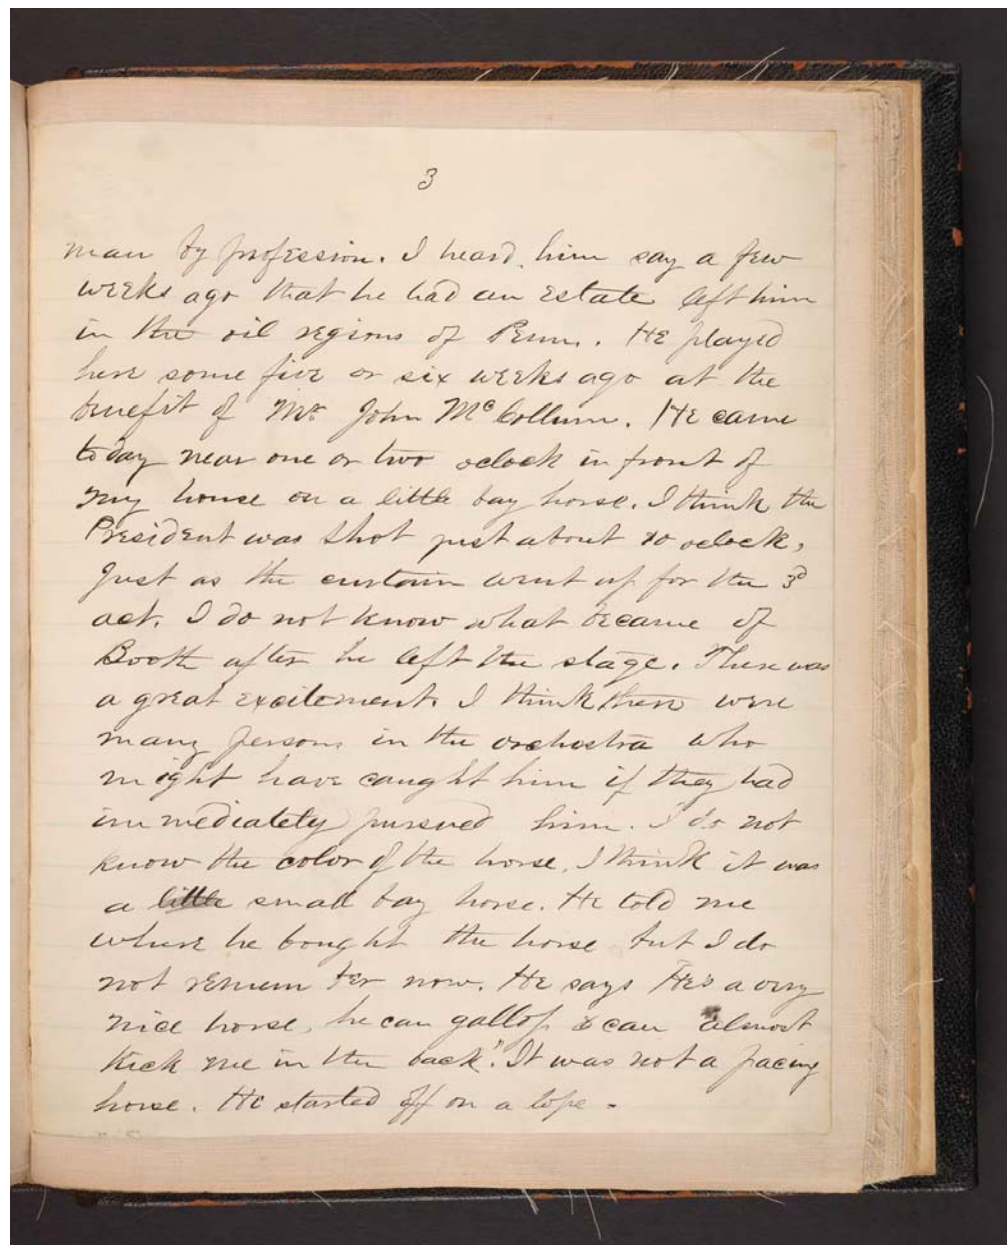 3
man by profession. I heard him say a few
weeks ago that he had an Estate left him
in the oil regions of Penn. He played
here some five or six weeks ago at the
benefit of Mr. John McCollum. He came
today near one or two oclock in front of
my house on a little bay horse. I think the
President was shot just about 10 oclock,
Just as the curtain went up for the 3d
act. I do not know what became of
Booth after he left the stage. There was
a great excitement. I think there were
many persons in the orchestra who
might have caught him if they had
immediately pursued him. I do not
know the color of the horse. I think it was
a little small bay horse. He told me
where he bought the horse but I do
not remember now. He says "He's a very
nice horse, he can gallop & can almost
kick me in the back". It was not a pacing
horse. He started off on a lope -